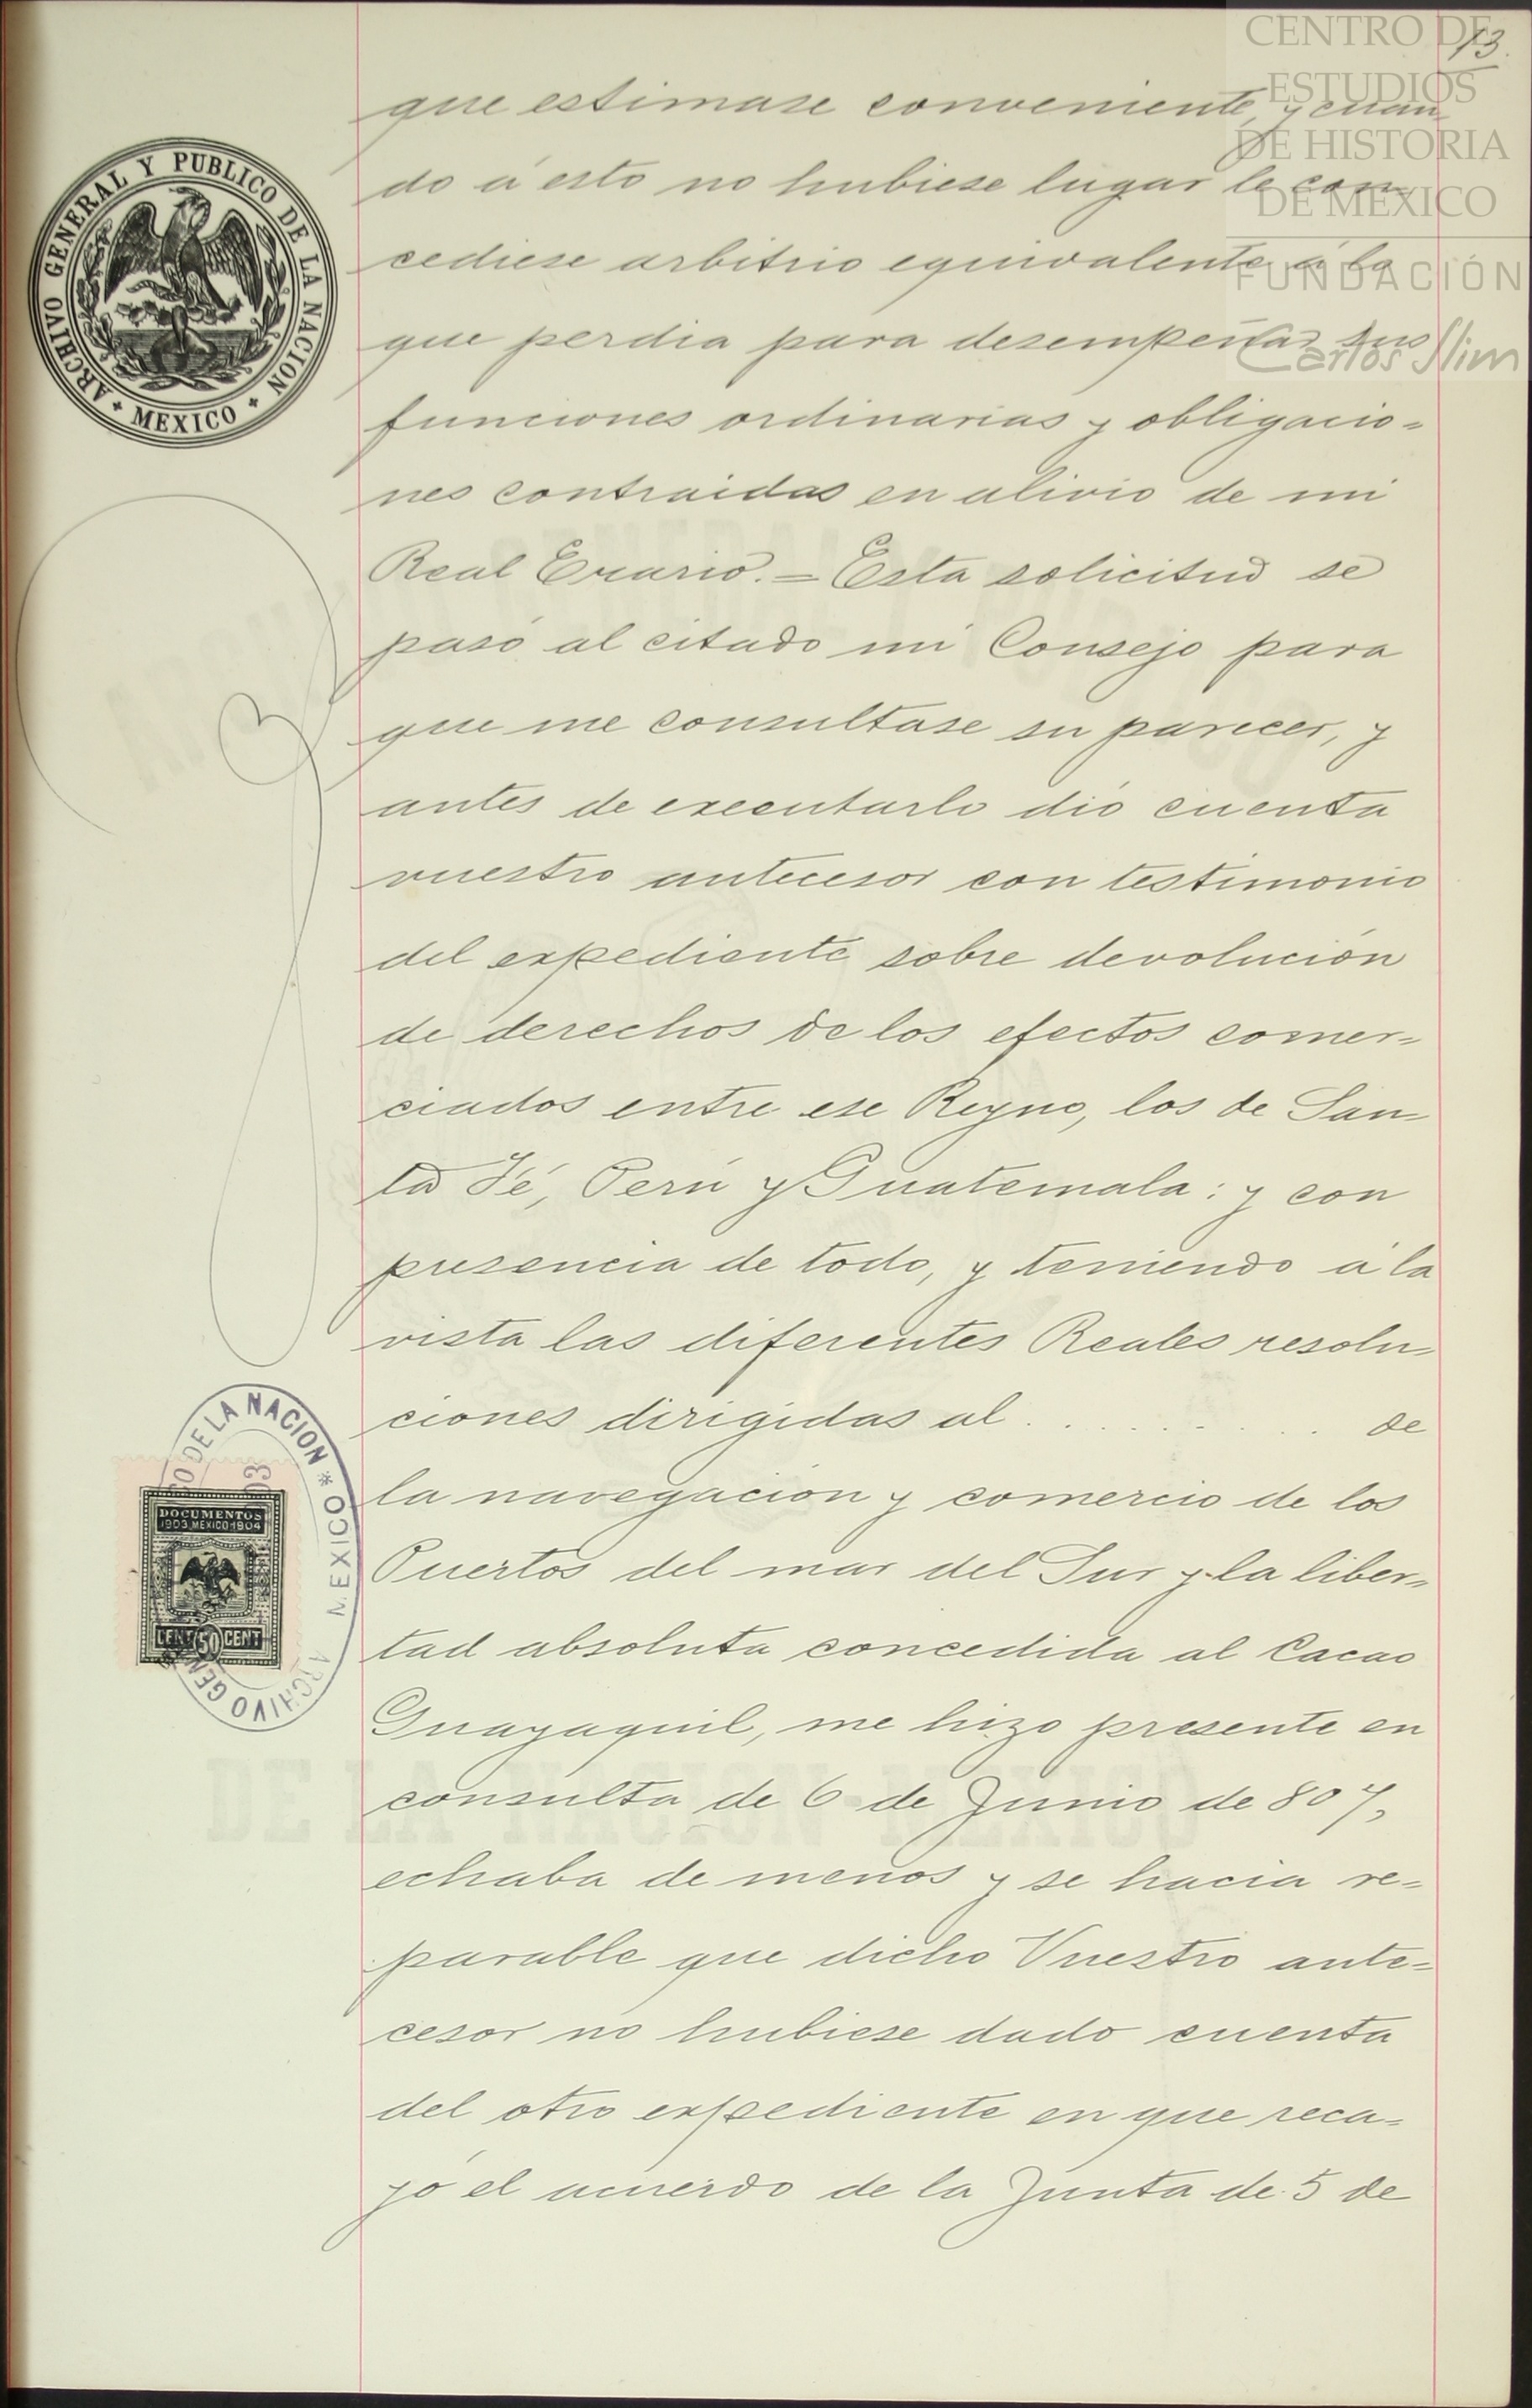 CENTRO DE
ESTUDIOS
DE HISTORIA
DE MÉXICO
FUNDACIÓN
Carlos Slim
13.
ARCHIVO GENERAL Y PUBLICO DE LA NACION
MEXICO
que estimase conveniente, y cuan-
do á esto no hubiese lugar le con-
cediese arbitrio equivalente á la
que perdia para desempeñar sus
funciones ordinarias y obligacio=
nes contraidas en alivio de mi
Real Erario.=Esta solicitud se
pasó al citado mi Consejo para
que me consultase su parecer, y
antes de executarlo dió cuenta
vuestro antecesor con testimonio
del expediente sobre devolución
de derechos de los efectos comer=
ciados entre ese Reyno, los de San-
ta Fé, Perú y Guatemala: y con
presencia de todo, y teniendo á la
vista las diferentes Reales resolu-
ciones dirigidas al . . . . . . . . . de
la navegación y comercio de los
Puertos del mar del Sur y la liber-
tad absoluta concedida al Cacao
Guayaquil, me hizo presente en
consulta de 6 de Junio de 807,
echaba de menos y se hacía re=
parable que dicho Vuestro ante=
cesor no hubiese dado cuenta
del otro expediente en que reca=
yó el acuerdo de la Junta de 5 de
DE LA NACION * MEXICO
ARCHIVO GEN
DOCUMENTOS
1903 MEXICO 1904
CENT 50 CENT
DE LA NACION MEXICO